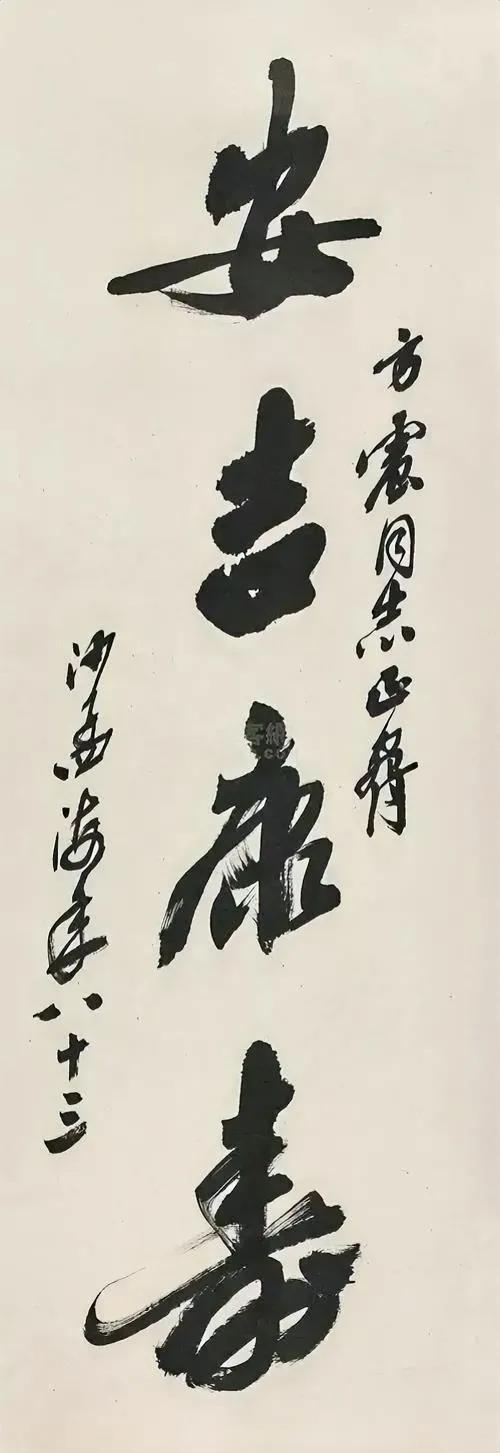 方震同志正
安吉康寿
沙孟海年八十三